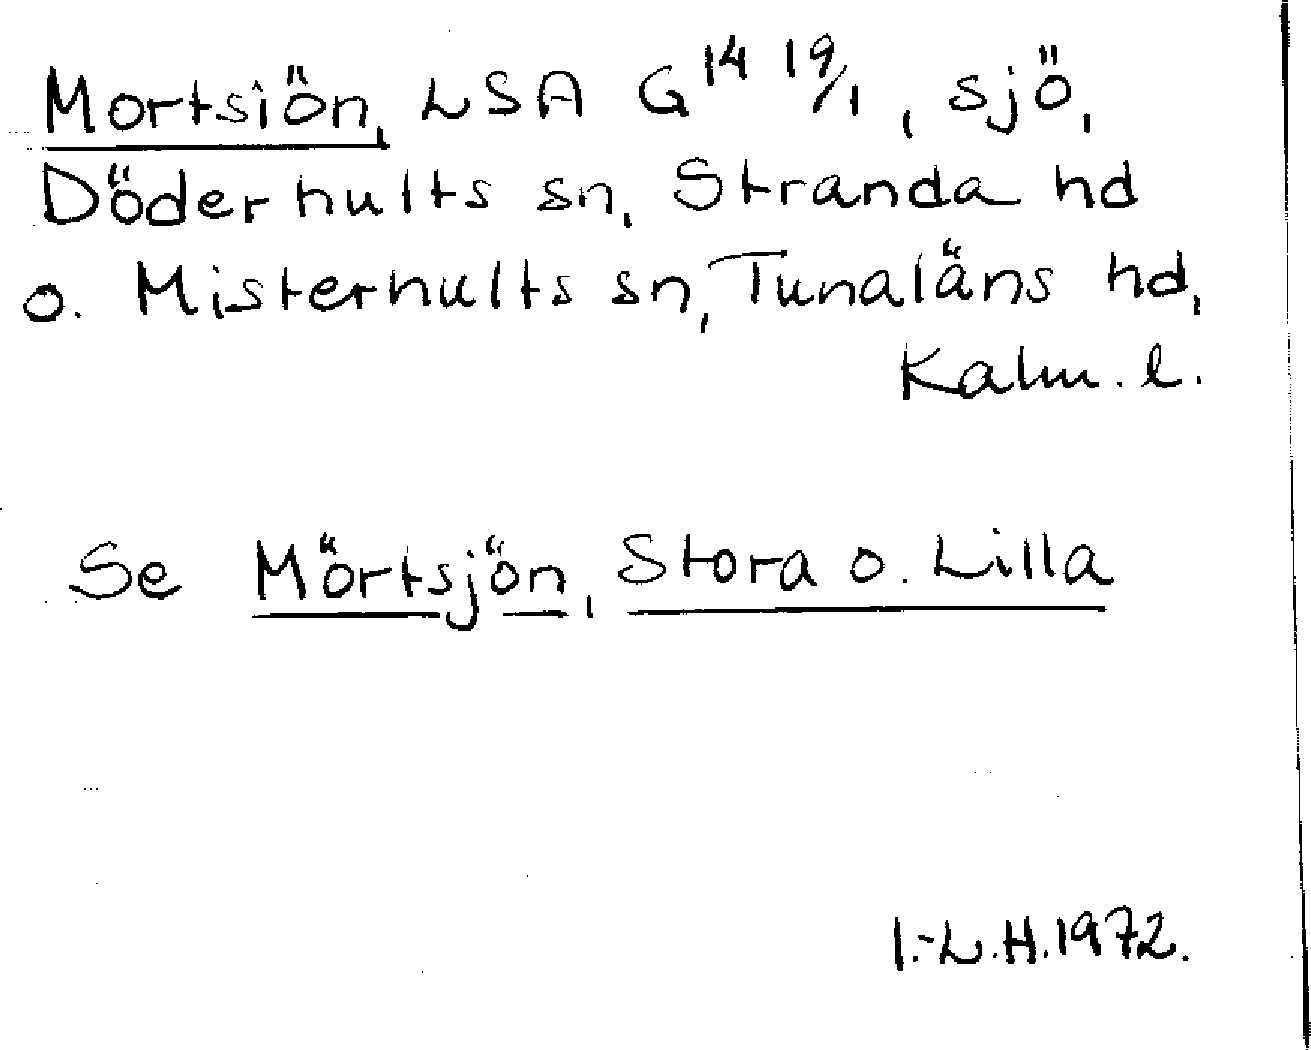 Mortsiön, LSA G¹⁴ ¹⁹/₁, sjö,
Döderhults sn, Stranda hd
o. Misterhults sn, Tunaläns hd,
Kalm. l.
Se Mörtsjön, Stora o. Lilla
I.-L.H.1972.